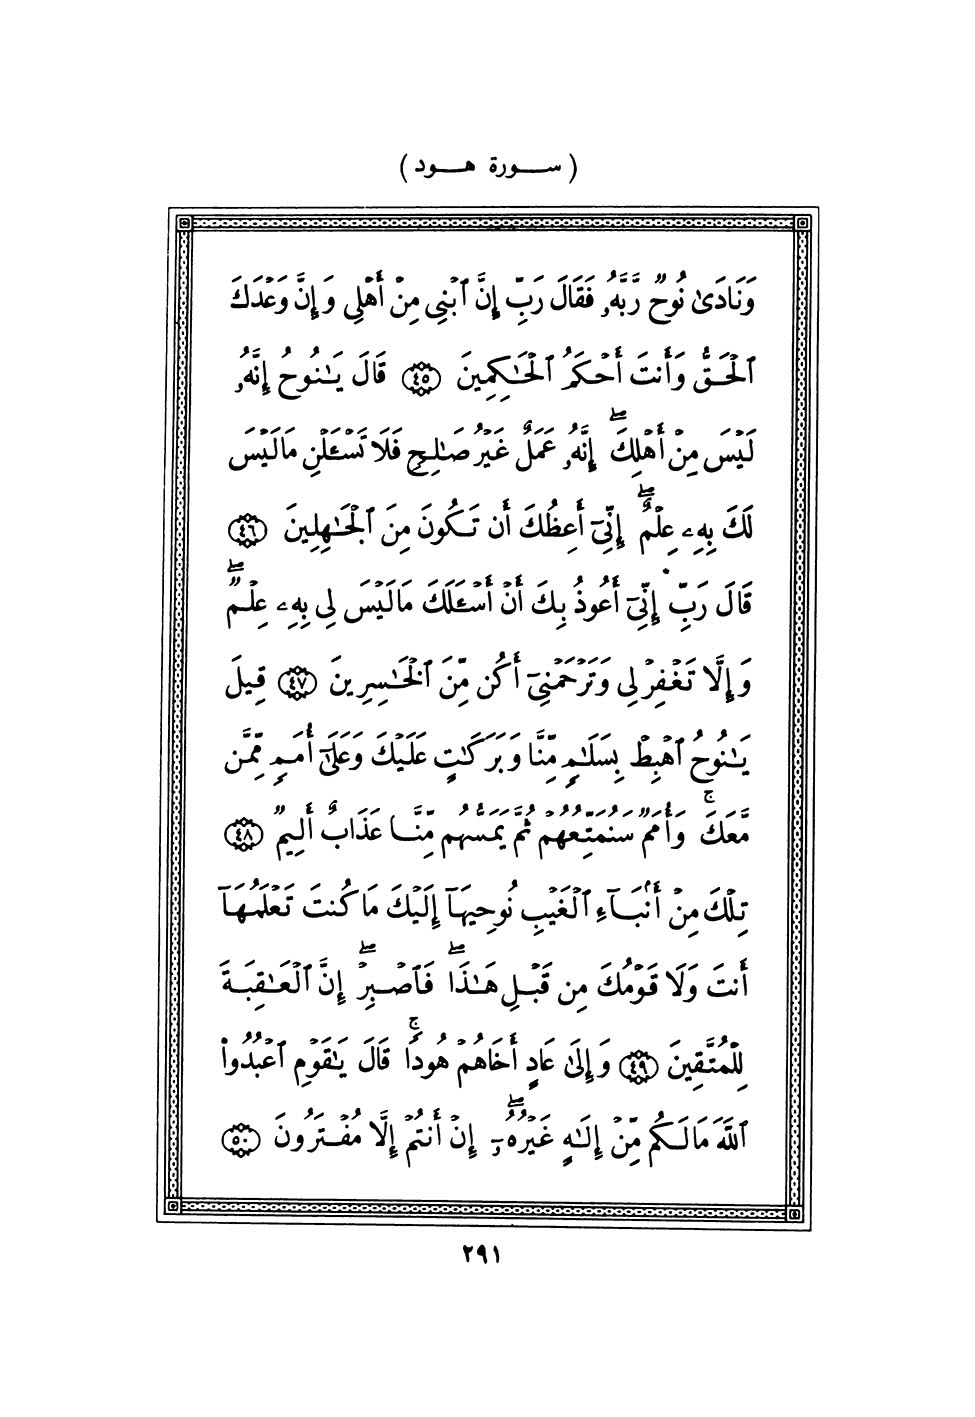 ( ســورة هــود )
وَنَادَىٰ نُوحٌ رَّبَّهُۥ فَقَالَ رَبِّ إِنَّ ٱبْنِى مِنْ أَهْلِى وَإِنَّ وَعْدَكَ
ٱلْحَقُّ وَأَنتَ أَحْكَمُ ٱلْحَـٰكِمِينَ ٤٥ قَالَ يَـٰنُوحُ إِنَّهُۥ
لَيْسَ مِنْ أَهْلِكَ ۖ إِنَّهُۥ عَمَلٌ غَيْرُ صَـٰلِحٍ فَلَا تَسْـَٔلْنِ مَا لَيْسَ
لَكَ بِهِۦ عِلْمٌ ۖ إِنِّىٓ أَعِظُكَ أَن تَكُونَ مِنَ ٱلْجَـٰهِلِينَ ٤٦
قَالَ رَبِّ إِنِّىٓ أَعُوذُ بِكَ أَنْ أَسْـَٔلَكَ مَا لَيْسَ لِى بِهِۦ عِلْمٌ ۖ
وَإِلَّا تَغْفِرْ لِى وَتَرْحَمْنِىٓ أَكُن مِّنَ ٱلْخَـٰسِرِينَ ٤٧ قِيلَ
يَـٰنُوحُ ٱهْبِطْ بِسَلَـٰمٍ مِّنَّا وَبَرَكَـٰتٍ عَلَيْكَ وَعَلَىٰٓ أُمَمٍ مِّمَّن
مَّعَكَ ۚ وَأُمَمٌ سَنُمَتِّعُهُمْ ثُمَّ يَمَسُّهُم مِّنَّا عَذَابٌ أَلِيمٌ ٤٨
تِلْكَ مِنْ أَنۢبَآءِ ٱلْغَيْبِ نُوحِيهَآ إِلَيْكَ مَا كُنتَ تَعْلَمُهَآ
أَنتَ وَلَا قَوْمُكَ مِن قَبْلِ هَـٰذَا ۖ فَٱصْبِرْ ۖ إِنَّ ٱلْعَـٰقِبَةَ
لِلْمُتَّقِينَ ٤٩ وَإِلَىٰ عَادٍ أَخَاهُمْ هُودًا ۚ قَالَ يَـٰقَوْمِ ٱعْبُدُوا۟
ٱللَّهَ مَا لَكُم مِّنْ إِلَـٰهٍ غَيْرُهُۥٓ ۖ إِنْ أَنتُمْ إِلَّا مُفْتَرُونَ ٥٠
٢٩١